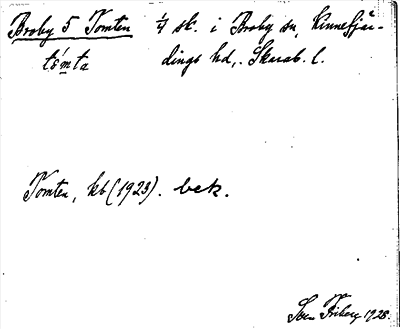 Broby 5 Tomten 1/4 sk. i Broby sn, Kinnefjär-
tómta dings hd,. Skarab. l.
Tomten, kb (1923). bek.
Sven Friberg 1928.